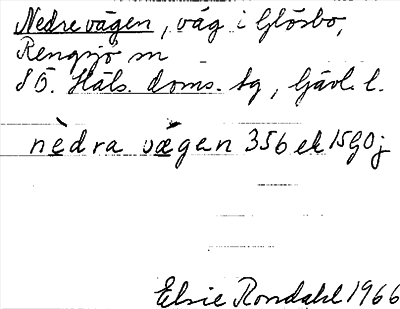 Nedre vägen, väg i Glösbo,
Rengsjö sn
SÖ. Häls. doms. tg, Gävl. l.
nèdra vägen 356 ek 15GOj
Elsie Rondahl 1966